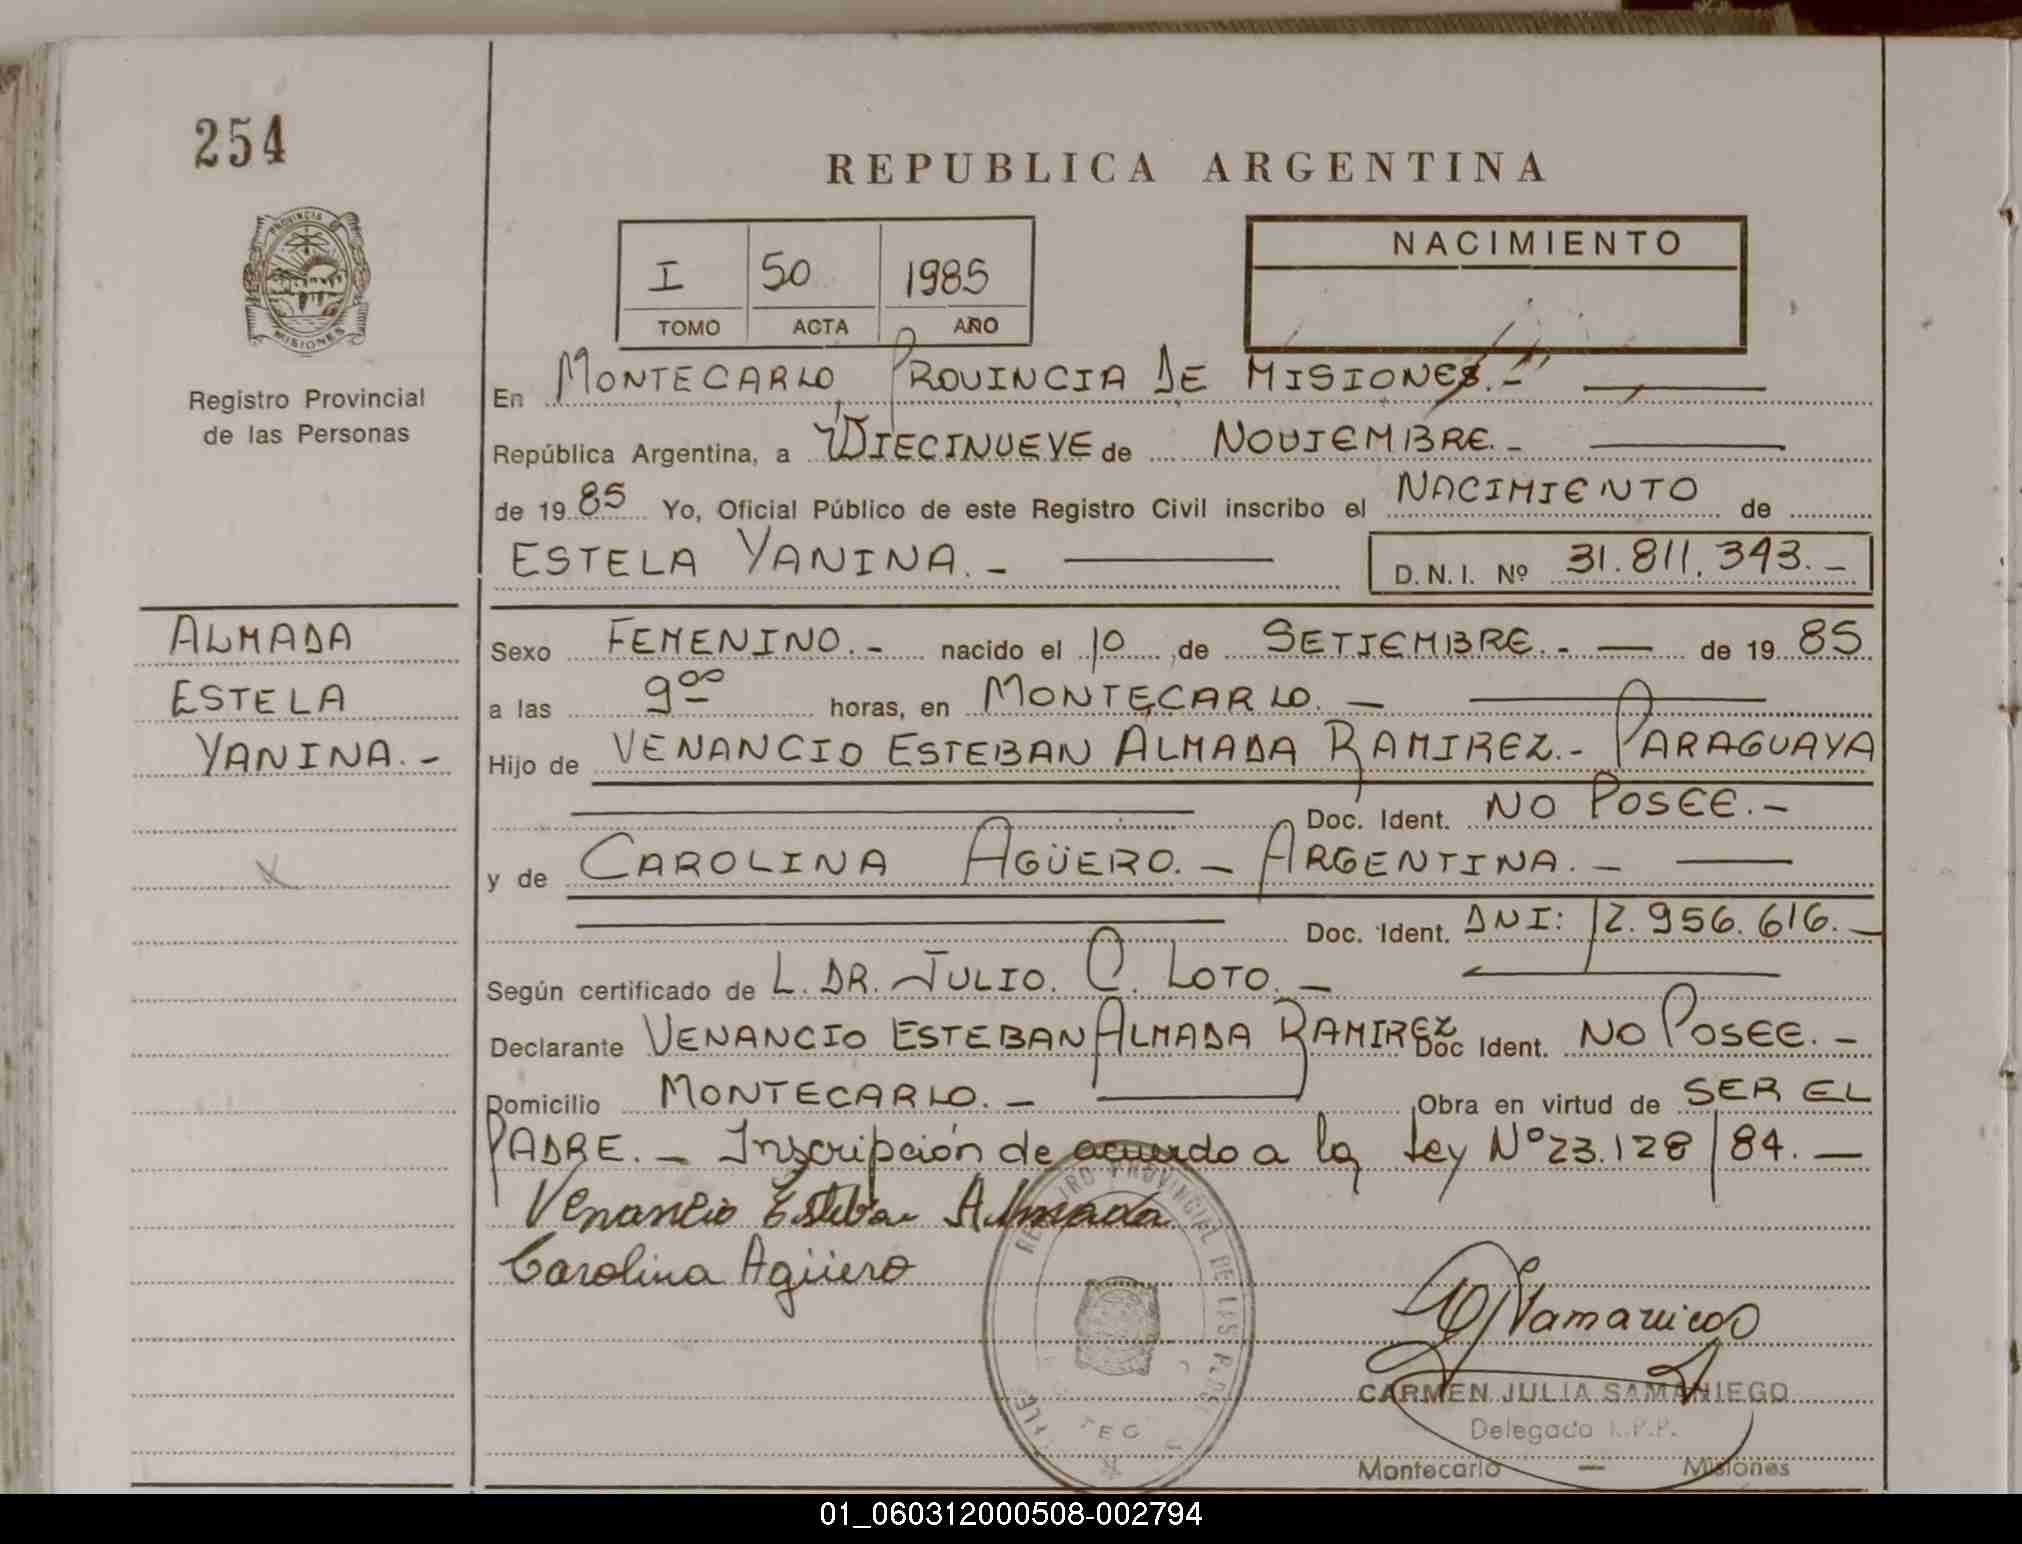 254
REPUBLICA ARGENTINA
PROVINCIA
MISIONES
Registro Provincial
de las Personas
I 50 1985
TOMO ACTA AÑO
NACIMIENTO
En MONTECARLO PROVINCIA DE MISIONES.-
República Argentina, a DIECINUEVE de NOVIEMBRE.-
de 1985 Yo, Oficial Público de este Registro Civil inscribo el NACIMIENTO de
ESTELA YANINA.- D.N.I. Nº 31.811.393.-
ALMADA
ESTELA
YANINA.-
Sexo FEMENINO.- nacido el 10 de SETIEMBRE.- de 1985
a las 900 horas, en MONTECARLO.-
Hijo de VENANCIO ESTEBAN ALMADA RAMIREZ.- PARAGUAYA
Doc. Ident. NO POSEE.-
y de CAROLINA AGÜERO.- ARGENTINA.-
Doc. Ident. DNI: 12.956.616.-
Según certificado de L. DR. JULIO. C. LOTO.-
Declarante VENANCIO ESTEBAN ALMADA RAMIREZ Doc Ident. NO POSEE.-
Domicilio MONTECARLO.- Obra en virtud de SER EL
PADRE.- Inscripción de acuerdo a la ley Nº 23.128/84.-
Venancio Esteban Almada
Carolina Agüero
REGISTRO PROVINCIAL DE LAS
CARMEN JULIA SAMANIEGO
Delegada R.P.P.
Montecarlo - Misiones
01_060312000508-002794